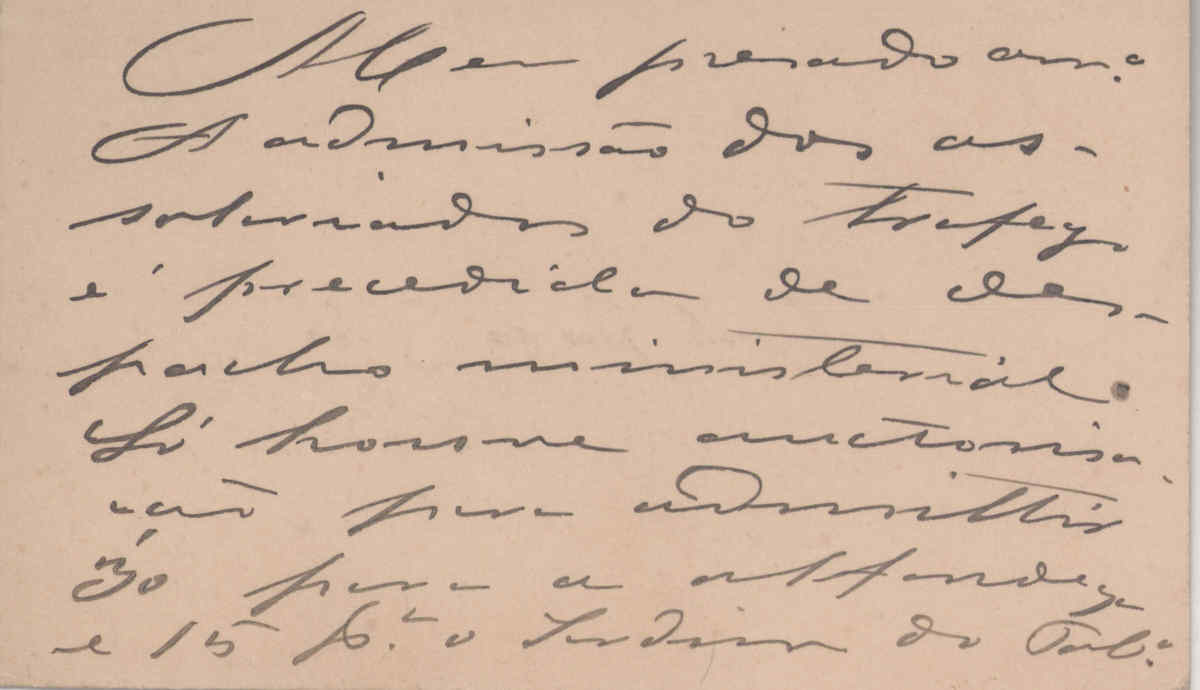 Meu presado am.o
A admissão dos as-
salariados do trafego
é precedida de des-
pacho ministerial.
Só houve auctorisa-
ção para admittir
30 para a alfandega
e 15 p.a o Jardim do Tab.o